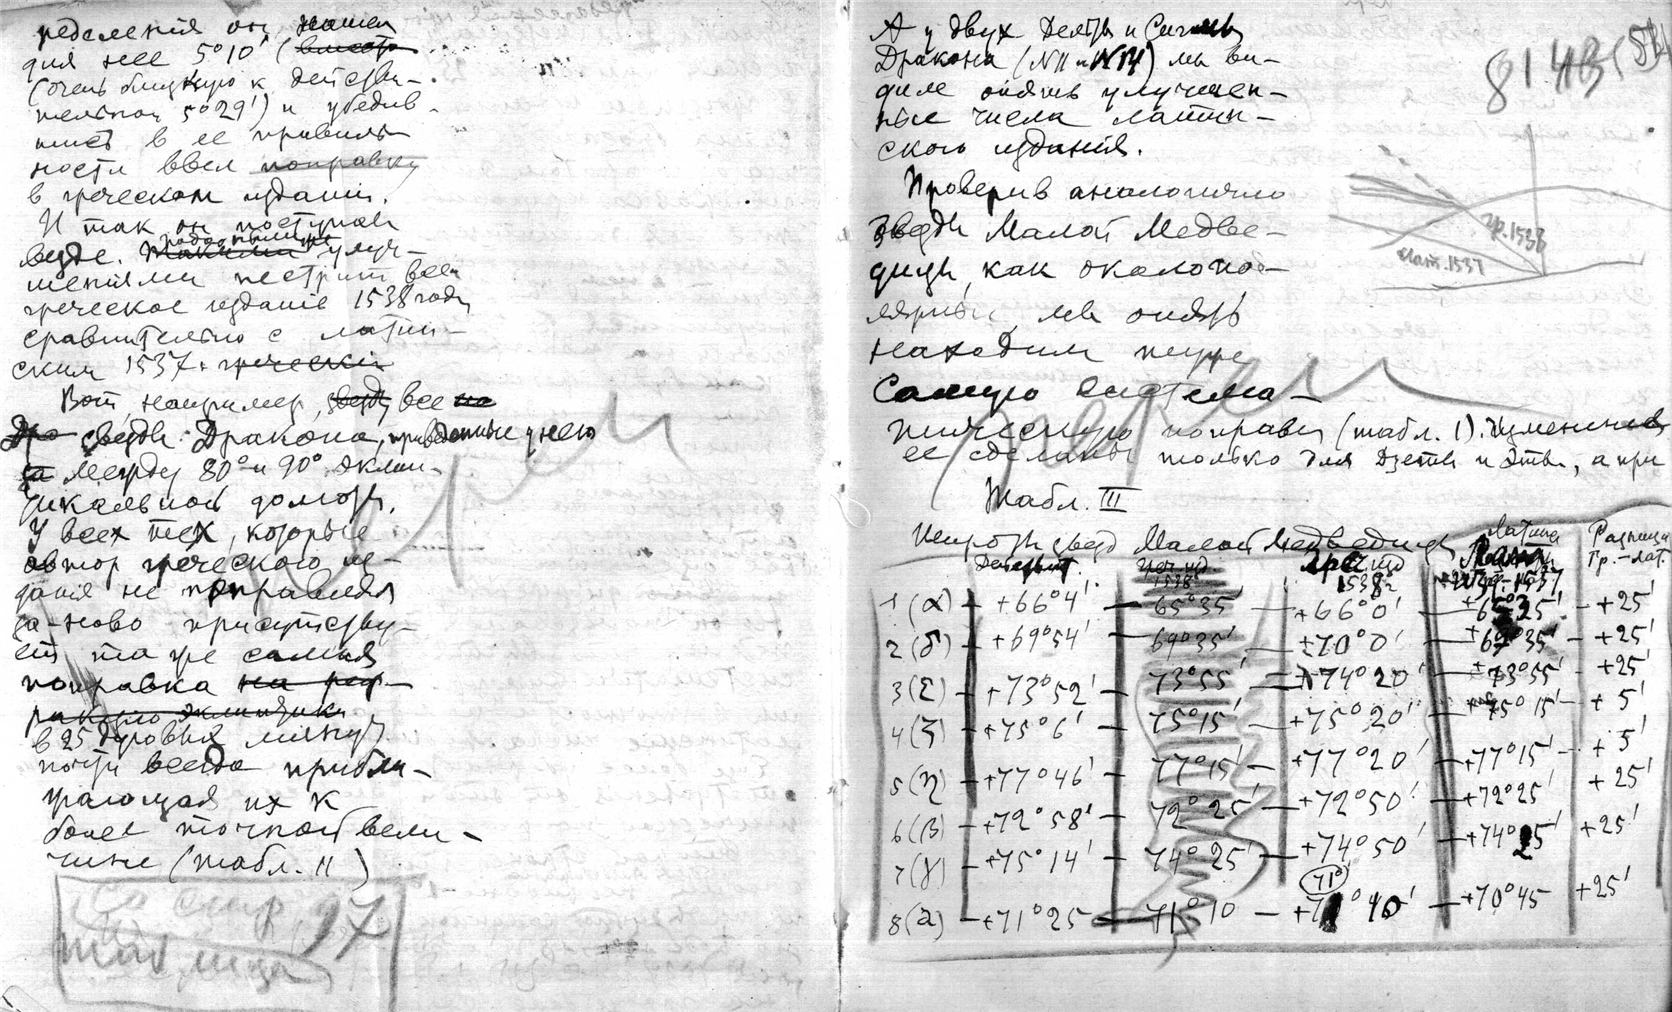 ределения он нашел
для нее 5°10' (вместо
(очень близкую к действи-
тельной 5°29') и убедив-
шись в ее правиль-
ности ввел поправку
в греческом издании.
И так он поступал
везде. Такими подобными улуч-
шениями пестрит все
греческое издание 1538 года
сравнительно с латин-
ским 1537. греческий
Вот, например, звезды все на
Дра звезды Дракона, приведенные у него
за между 80° и 90° эклип-
тикальной долготы.
У всех тех, которые
автор греческого из-
дания не поправлял
за-ново присутству-
ет та же самая
поправка на реф-
ракцию эклиптики
в 25 дуговых минут
почти всегда прибли-
жающая их к
более точной вели-
чине (табл. II)
Со стр. 97
таблица
А у двух Дельты и Сигмы
Дракона (N11 и N14) мы ви-
дим опять улучшен-
ные числа латин-
ского издания.
8143 (51)
Проверив аналогично
звезды Малой Медве-
дицы, как околопо-
лярные, мы опять
находим ту же
самую система-
тическую поправку (табл. I). Изменения
ее сделаны только для Дзеты и Эты, а при
гр. 1538
лат. 1537
Табл. III
Широты звезд Малой Медведицы
Действит. греч. изд. 1538 Греч. изд. 1538 г. Латинск. изд. 1537 Разница Гр. – лат.
1 (α) – +66°4' – 65°35' – +66°0' – +65°35' – +25'
2 (δ) – +69°54' – 69°35' – +70°0' – +69°35' – +25'
3 (Σ) – +73°52' – 73°55' – +74°20' – +73°55' – +25'
4 (ζ) – +75°6' – 75°15' – +75°20' – +75°15' – +5'
5 (η) – +77°46' – 77°15' – +77°20' – +77°15' – +5'
6 (β) – +72°58' – 72°25' – +72°50' – +72°25' – +25'
7 (γ) – +75°14' – 74°25' – +74°50' – +74°25' – +25'
71°
8 (a) – +71°25 – 71°10 – +71°10' – +70°45 – +25'